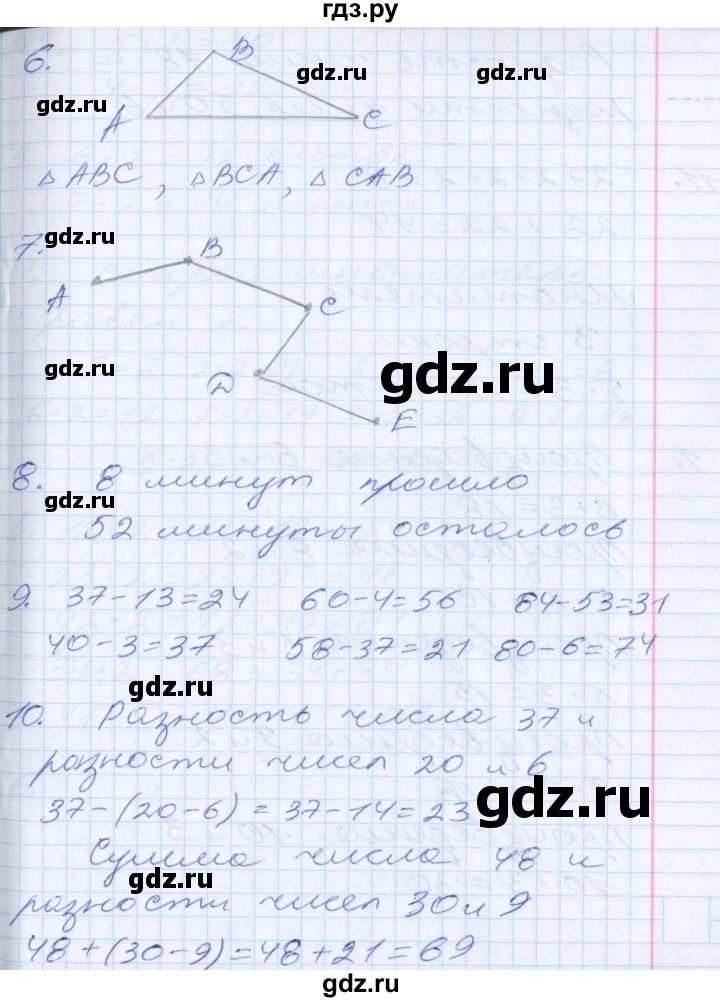 гдз.ру
6.
B
gdz.ru
gdz.ru
gdz.ru
A
C
△ ABC, △ BCA, △ CAB
7.
gdz.ru
B
A
C
gdz.ru
gdz.ru
D
E
8. 8 минут прошло
gdz.ru
gdz.ru
52 минуты осталось
gdz.ru
gdz.ru
9. 37-13=24 60-4=56 84-53=31
40-3=37 58-37=21 80-6=74
gdz.ru
gdz.ru
10. Разность числа 37 и
разности чисел 20 и 6
37-(20-6)=37-14=23
gdz.ru
Сумма числа 48 и
gdz.ru
разности чисел 30 и 9
48+(30-9)=48+21=69
gdz.ru
gdz.ru